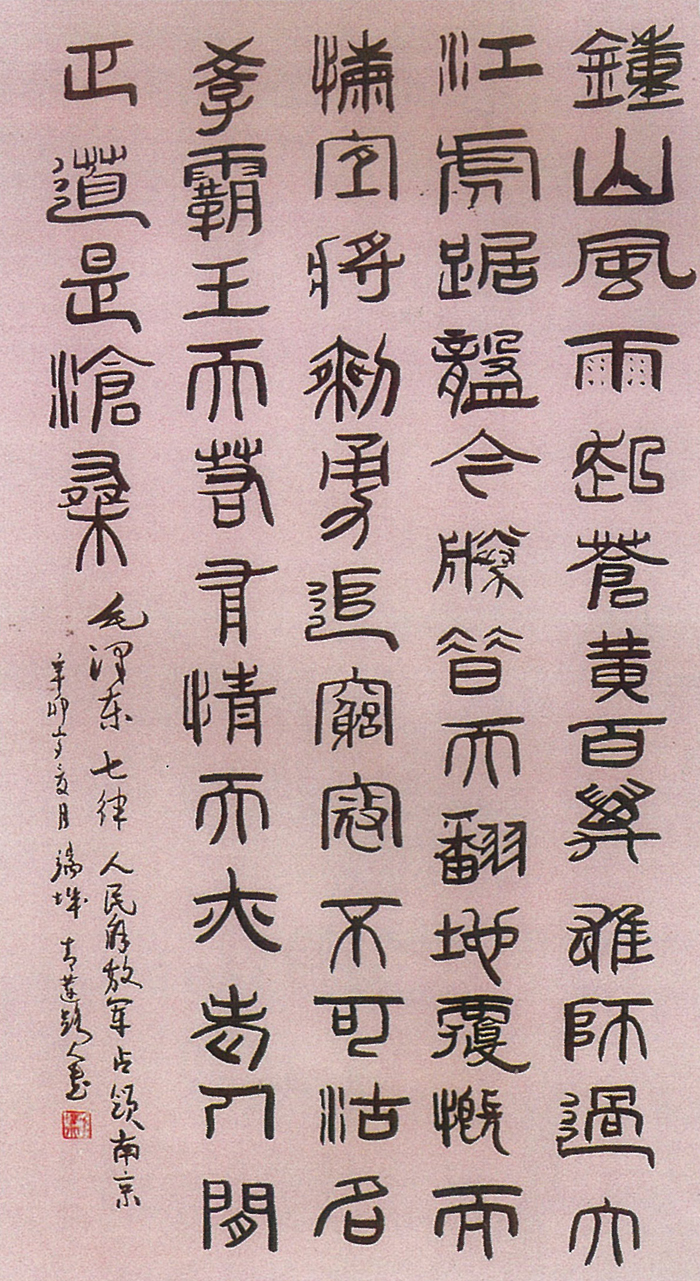 鍾山風雨起蒼黃百萬雄師過大
江虎踞龍盤今勝昔天翻地覆慨而
慷宜將剩勇追窮寇不可沽名
學霸王天若有情天亦老人間
正道是滄桑
毛泽东七律人民解放军占领南京
辛卯年亥月端城青莲人书